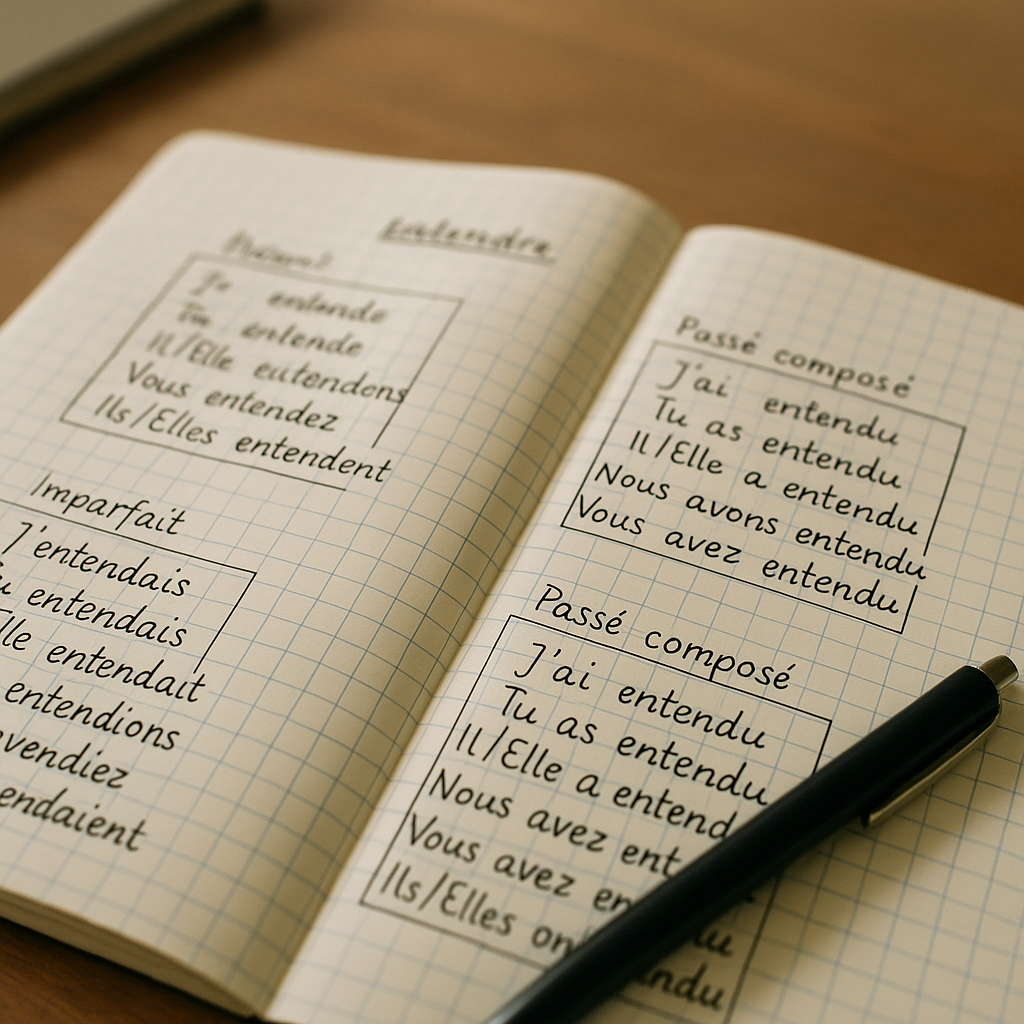 Entendre
Présent
Je entende
Tu entende
Il/Elle eutendons
Vous entendez
Ils/Elles entendent
Imparfait
J'entendais
entendais
lle entendait
entendions
vendiez
endaient
Passé composé
J'ai entendu
Tu as entendu
Il/Elle a entendu
Nous avons entendu
Vous avez entendu
Passé composé
J'ai entendu
Tu as entendu
Il/Elle a entend
Nous avez ent
Vous avez en
Ils/Elles on